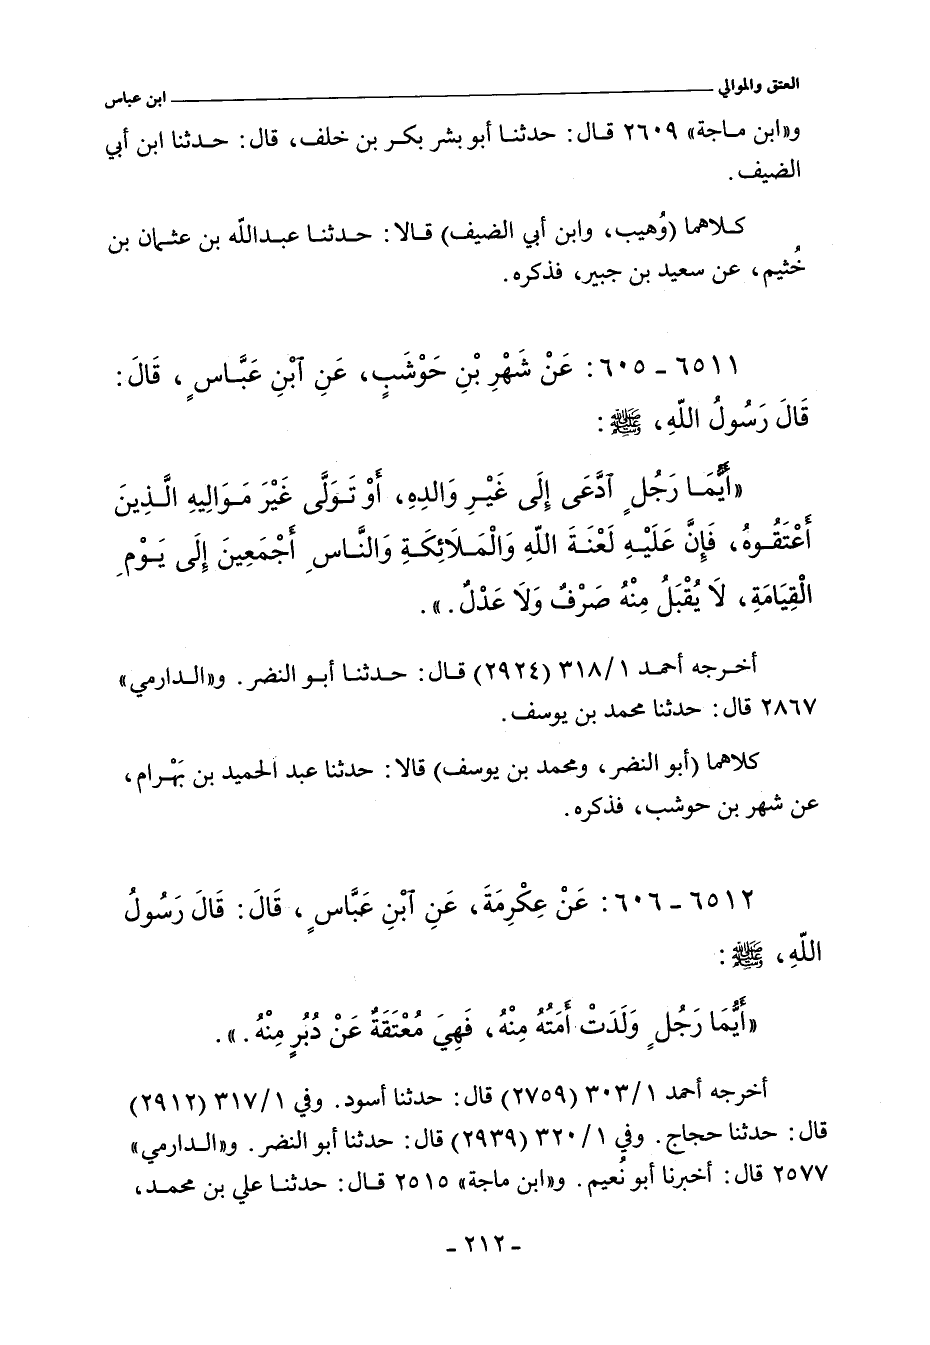 العتق والموالي ــــــــــــــــــــــــــــــــ ابن عباس
و«ابن ماجة» ٢٦٠٩ قال: حدثنا أبو بشر بكر بن خلف، قال: حدثنا ابن أبي
الضيف.
كلاهما (وُهيب، وابن أبي الضيف) قالا: حدثنا عبدالله بن عثمان بن
خُثيم، عن سعيد بن جبير، فذكره.
٦٥١١ - ٦٠٥: عَنْ شَهْرِ بْنِ حَوْشَبٍ، عَنِ آبْنِ عَبَّاسٍ، قَالَ:
قَالَ رَسُولُ اللّهِ، ﷺ:
«أَيُّمَا رَجُلٍ آدَّعَى إِلَى غَيْرِ وَالِدِهِ، أَوْ تَوَلَّى غَيْرَ مَوَالِيهِ الَّذِينَ
أَعْتَقُوهُ، فَإِنَّ عَلَيْهِ لَعْنَةَ اللّهِ وَالْمَلَائِكَةِ وَالنَّاسِ أَجْمَعِينَ إِلَى يَوْمِ
الْقِيَامَةِ، لَا يُقْبَلُ مِنْهُ صَرْفٌ وَلَا عَدْلٌ.».
أخرجه أحمد ٣١٨/١ (٢٩٢٤) قال: حدثنا أبو النضر. و«الدارمي»
٢٨٦٧ قال: حدثنا محمد بن يوسف.
كلاهما (أبو النضر، ومحمد بن يوسف) قالا: حدثنا عبد الحميد بن بَهْرام،
عن شهر بن حوشب، فذكره.
٦٥١٢ - ٦٠٦: عَنْ عِكْرِمَةَ، عَنِ آبْنِ عَبَّاسٍ، قَالَ: قَالَ رَسُولُ
اللّهِ، ﷺ:
«أَيُّمَا رَجُلٍ وَلَدَتْ أَمَتُهُ مِنْهُ، فَهِيَ مُعْتَقَةٌ عَنْ دُبُرٍ مِنْهُ.».
أخرجه أحمد ٣٠٣/١ (٢٧٥٩) قال: حدثنا أسود. وفي ٣١٧/١ (٢٩١٢)
قال: حدثنا حجاج. وفي ٣٢٠/١ (٢٩٣٩) قال: حدثنا أبو النضر. و«الدارمي»
٢٥٧٧ قال: أخبرنا أبو نُعيم. و«ابن ماجة» ٢٥١٥ قال: حدثنا علي بن محمد،
- ٢١٢ -